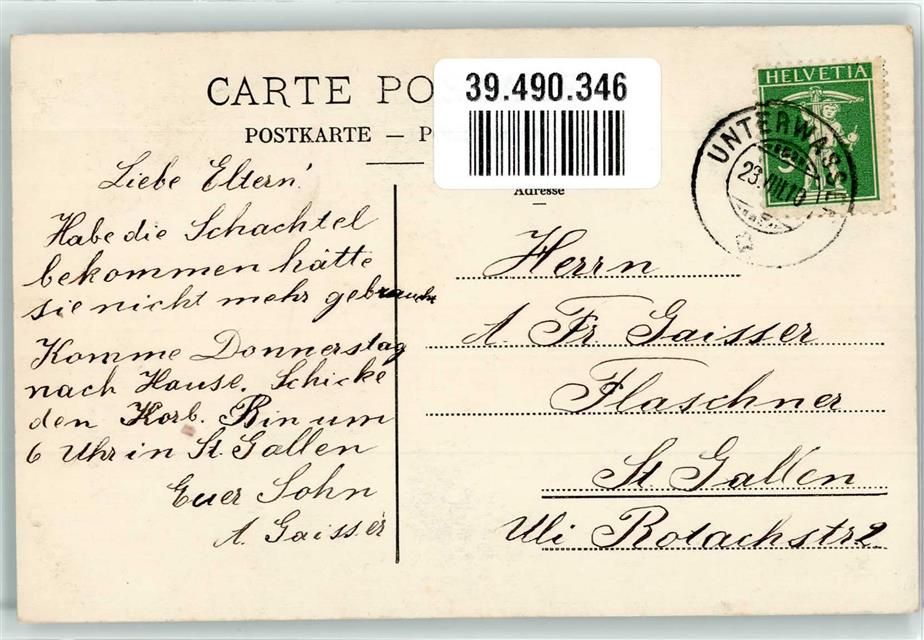 CARTE PO
39.490.346
POSTKARTE — P
Adresse
HELVETIA
UNTERWASS
23.VIII.10
Liebe Eltern!
Habe die Schachtel
bekommen hätte
sie nicht mehr gebraucht
Komme Donnerstag
nach Hause. Schicke
den Korb. Bin um
6 Uhr in St. Gallen
Euer Sohn
A. Gaisser
Herrn
A. Fr. Gaisser
Flaschner
St Gallen
Uli Rotachstr 2.